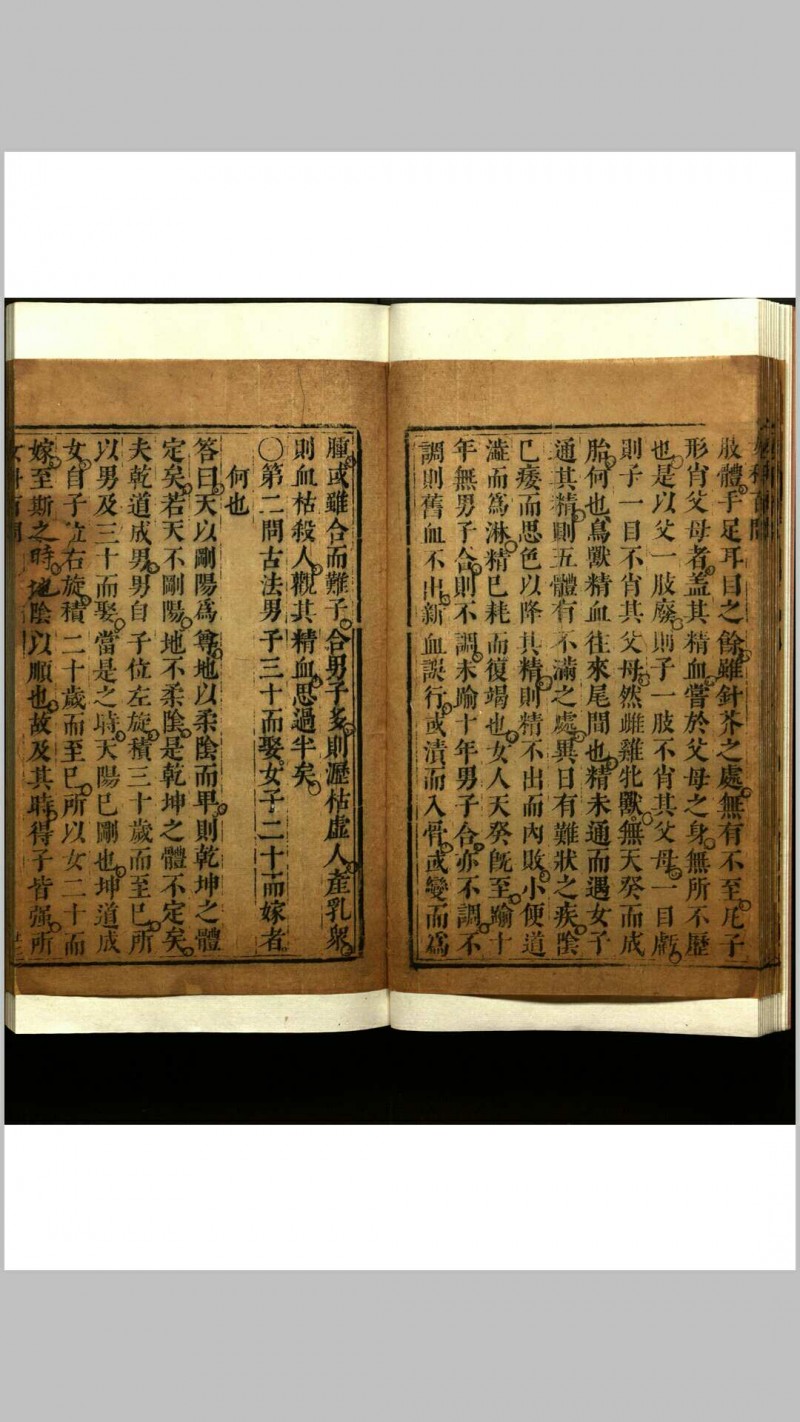 肢體手足耳目之餘雖針芥之處無有不至凡子
形肖父母者蓋其精血嘗於父母之身無所不歷
也是以父一肢廢則子一肢不肖其父母一目虧
則子一目不肖其父母然雌雞牝獸無天癸而成
胎何也鳥獸精血往來尾閭也精未通而遇女子
通其精則五體有不滿之處異日有難狀之疾陰
已痿而思色以降其精則精不出而內敗小便道
澁而爲淋精已耗而復竭也女人天癸既至踰十
年無男子合則不調未踰十年男子合亦不調不
調則舊血不出新血誤行或漬而入骨或變而爲
腫或雖合而難子合男子多則瀝枯虛人產乳衆
則血枯殺人觀其精血思過半矣
〇第二問古法男子三十而娶女子二十而嫁者
何也
答曰天以剛陽爲尊地以柔陰而卑則乾坤之體
定矣若天不剛陽地不柔陰是乾坤之體不定矣
夫乾道成男男自子位左旋積三十歲而至巳所
以男及三十而娶當是之時天陽已剛也坤道成
女女自子位右旋積二十歲而至巳所以女二十而
嫁至斯之時地陰以順也故及其時得子皆强所